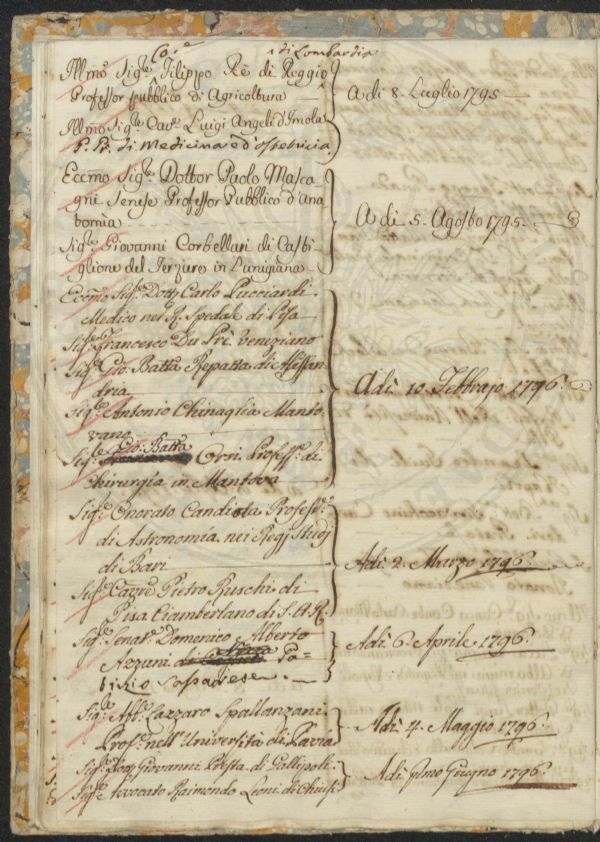 Co:e di Lombardia
Illmo Sig:e Filippo Rè di Reggio
Professor pubblico di Agricoltura
A di 8. Luglio 1795.
Illmo Sig:e Cav:e Luigi Angeli d'Imola
P. P. di Medicina e d'ostetricia
Eccmo Sig:e Dottor Paolo Masca
gni Senese Professor Pubblico d'Ana
tomia
A di 5. Agosto 1795.
Sig:e Giovanni Corbellari di Casti
glione del Terziere in Lunigiana
Eccmo Sig:e Dott: Carlo Pucciardi
Medico nel R. Spedale di Pisa
Sig:e Francesco Du Prè Veneziano
Sig:e Gio: Batta Repatta di Alessan
dria
Adì 10. Febbrajo 1796.
Sig:e Antonio Chinaglia Manto
vano
Sig:e Gio: Batta Orsi Profess:e di
Chirurgia in Mantova
Sig:e Onorato Candiota Profess:e
di Astronomia nei Regj Studj
di Bari
Adì 2. Marzo 1796.
Sig:e Cavre Pietro Ruschi di
Pisa Ciamberlano di S. A. R.
Sig:e Senat:e Domenico Alberto
Azzuni di Pa=
trizio Sassarese
Adì 6. Aprile 1796.
Sig:e Ab:e Lazzaro Spallanzani
Prof:e nell'Università di Pavia
Adì 4. Maggio 1796.
Sig:e Dott: Giovanni Presta di Gallipoli
Sig:e Avvocato Raimondo Leoni di Chiusi
Adì pmo Giugno 1796.